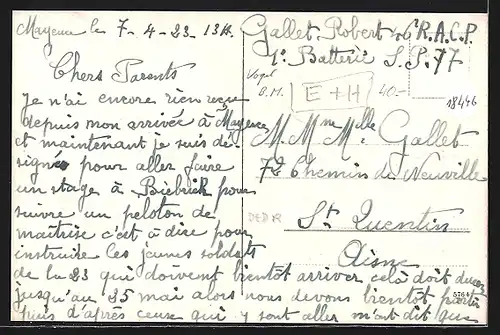 Mayence le 7-4-23-13H.
Chers Parents
Je n'ai encore rien reçu
depuis mon arrivée à Mayence
et maintenant je suis dé-
signé pour aller faire
un stage à Biebrich pour
suivre un peloton de
maîtrise c'est à dire pour
instruire les jeunes soldats
de la 23 qui doivent bientôt arriver celà doit durer
jusqu'au 25 mai alors nous devons bientôt partir
puis d'après ceux qui y sont aller m'ont dit que
Gallet Robert R.A.C.P.
1e Batterie S.P. 77
Vogel
B.M.
E+H
40.-
18446
M. Mme Mlle Gallet
72 Chemin de Neuville
St Quentin
Aisne